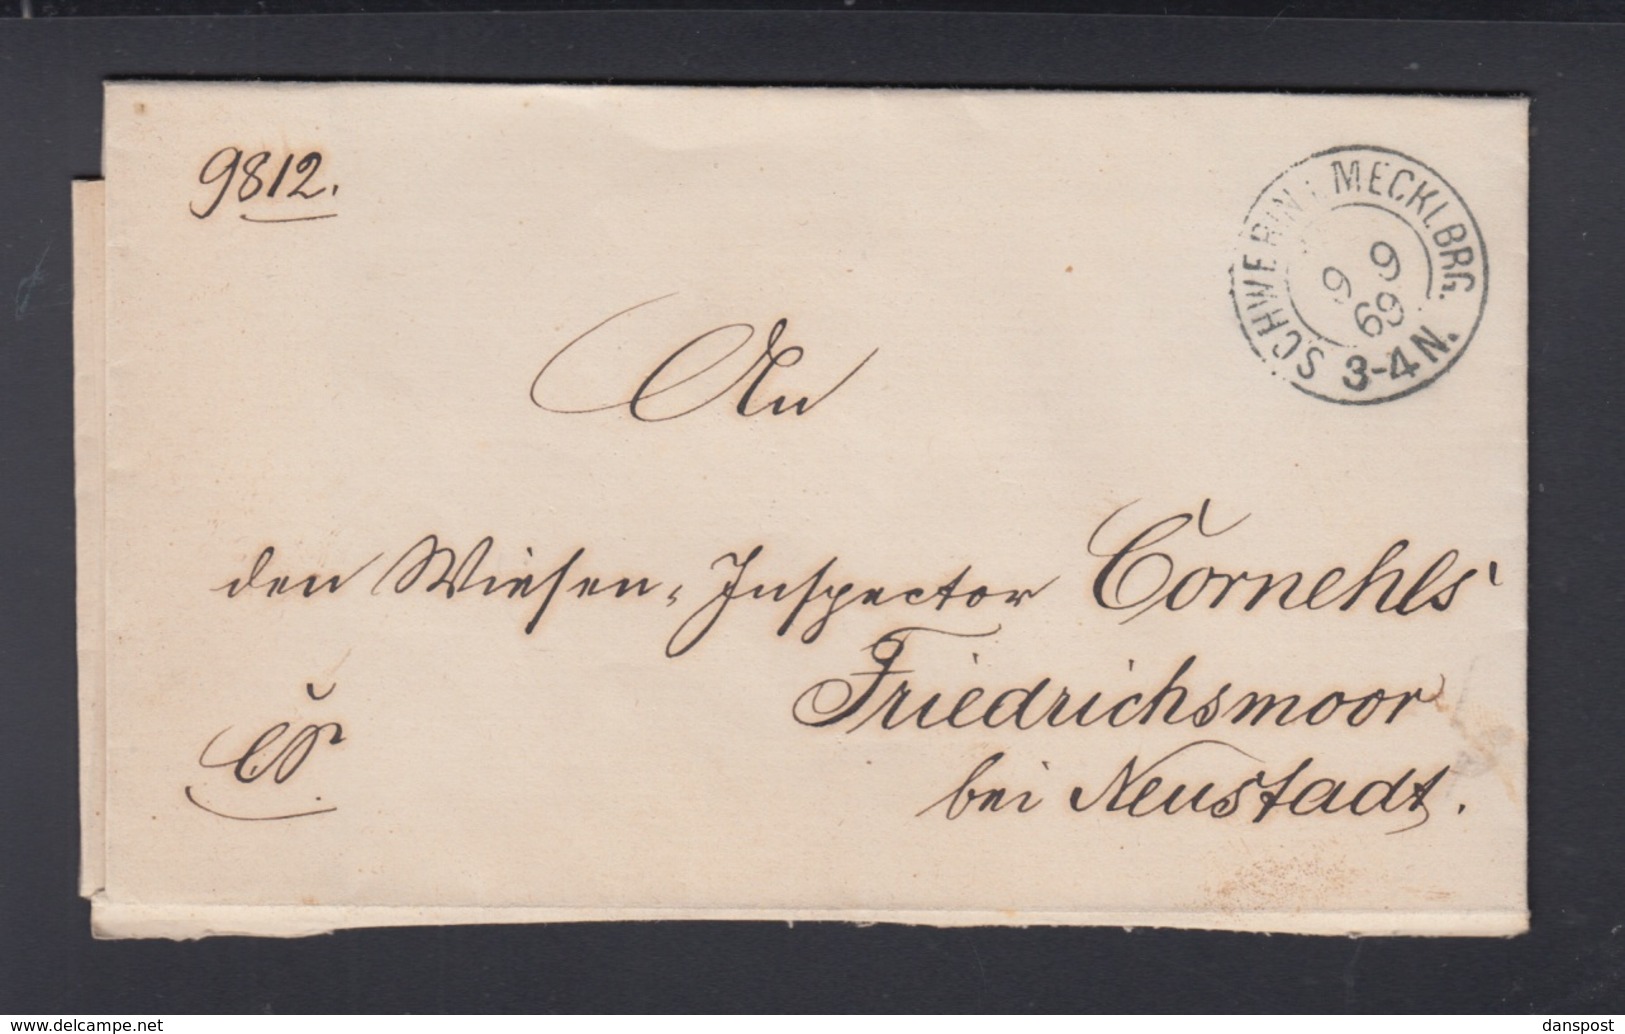 9812.
SCHWERIN I. MECKLBRG.
9 9
69
3-4 N.
An
den Wiesen-Inspector Cornehls
Friedrichsmoor
bei Neustadt.
www.delcampe.net
danspost